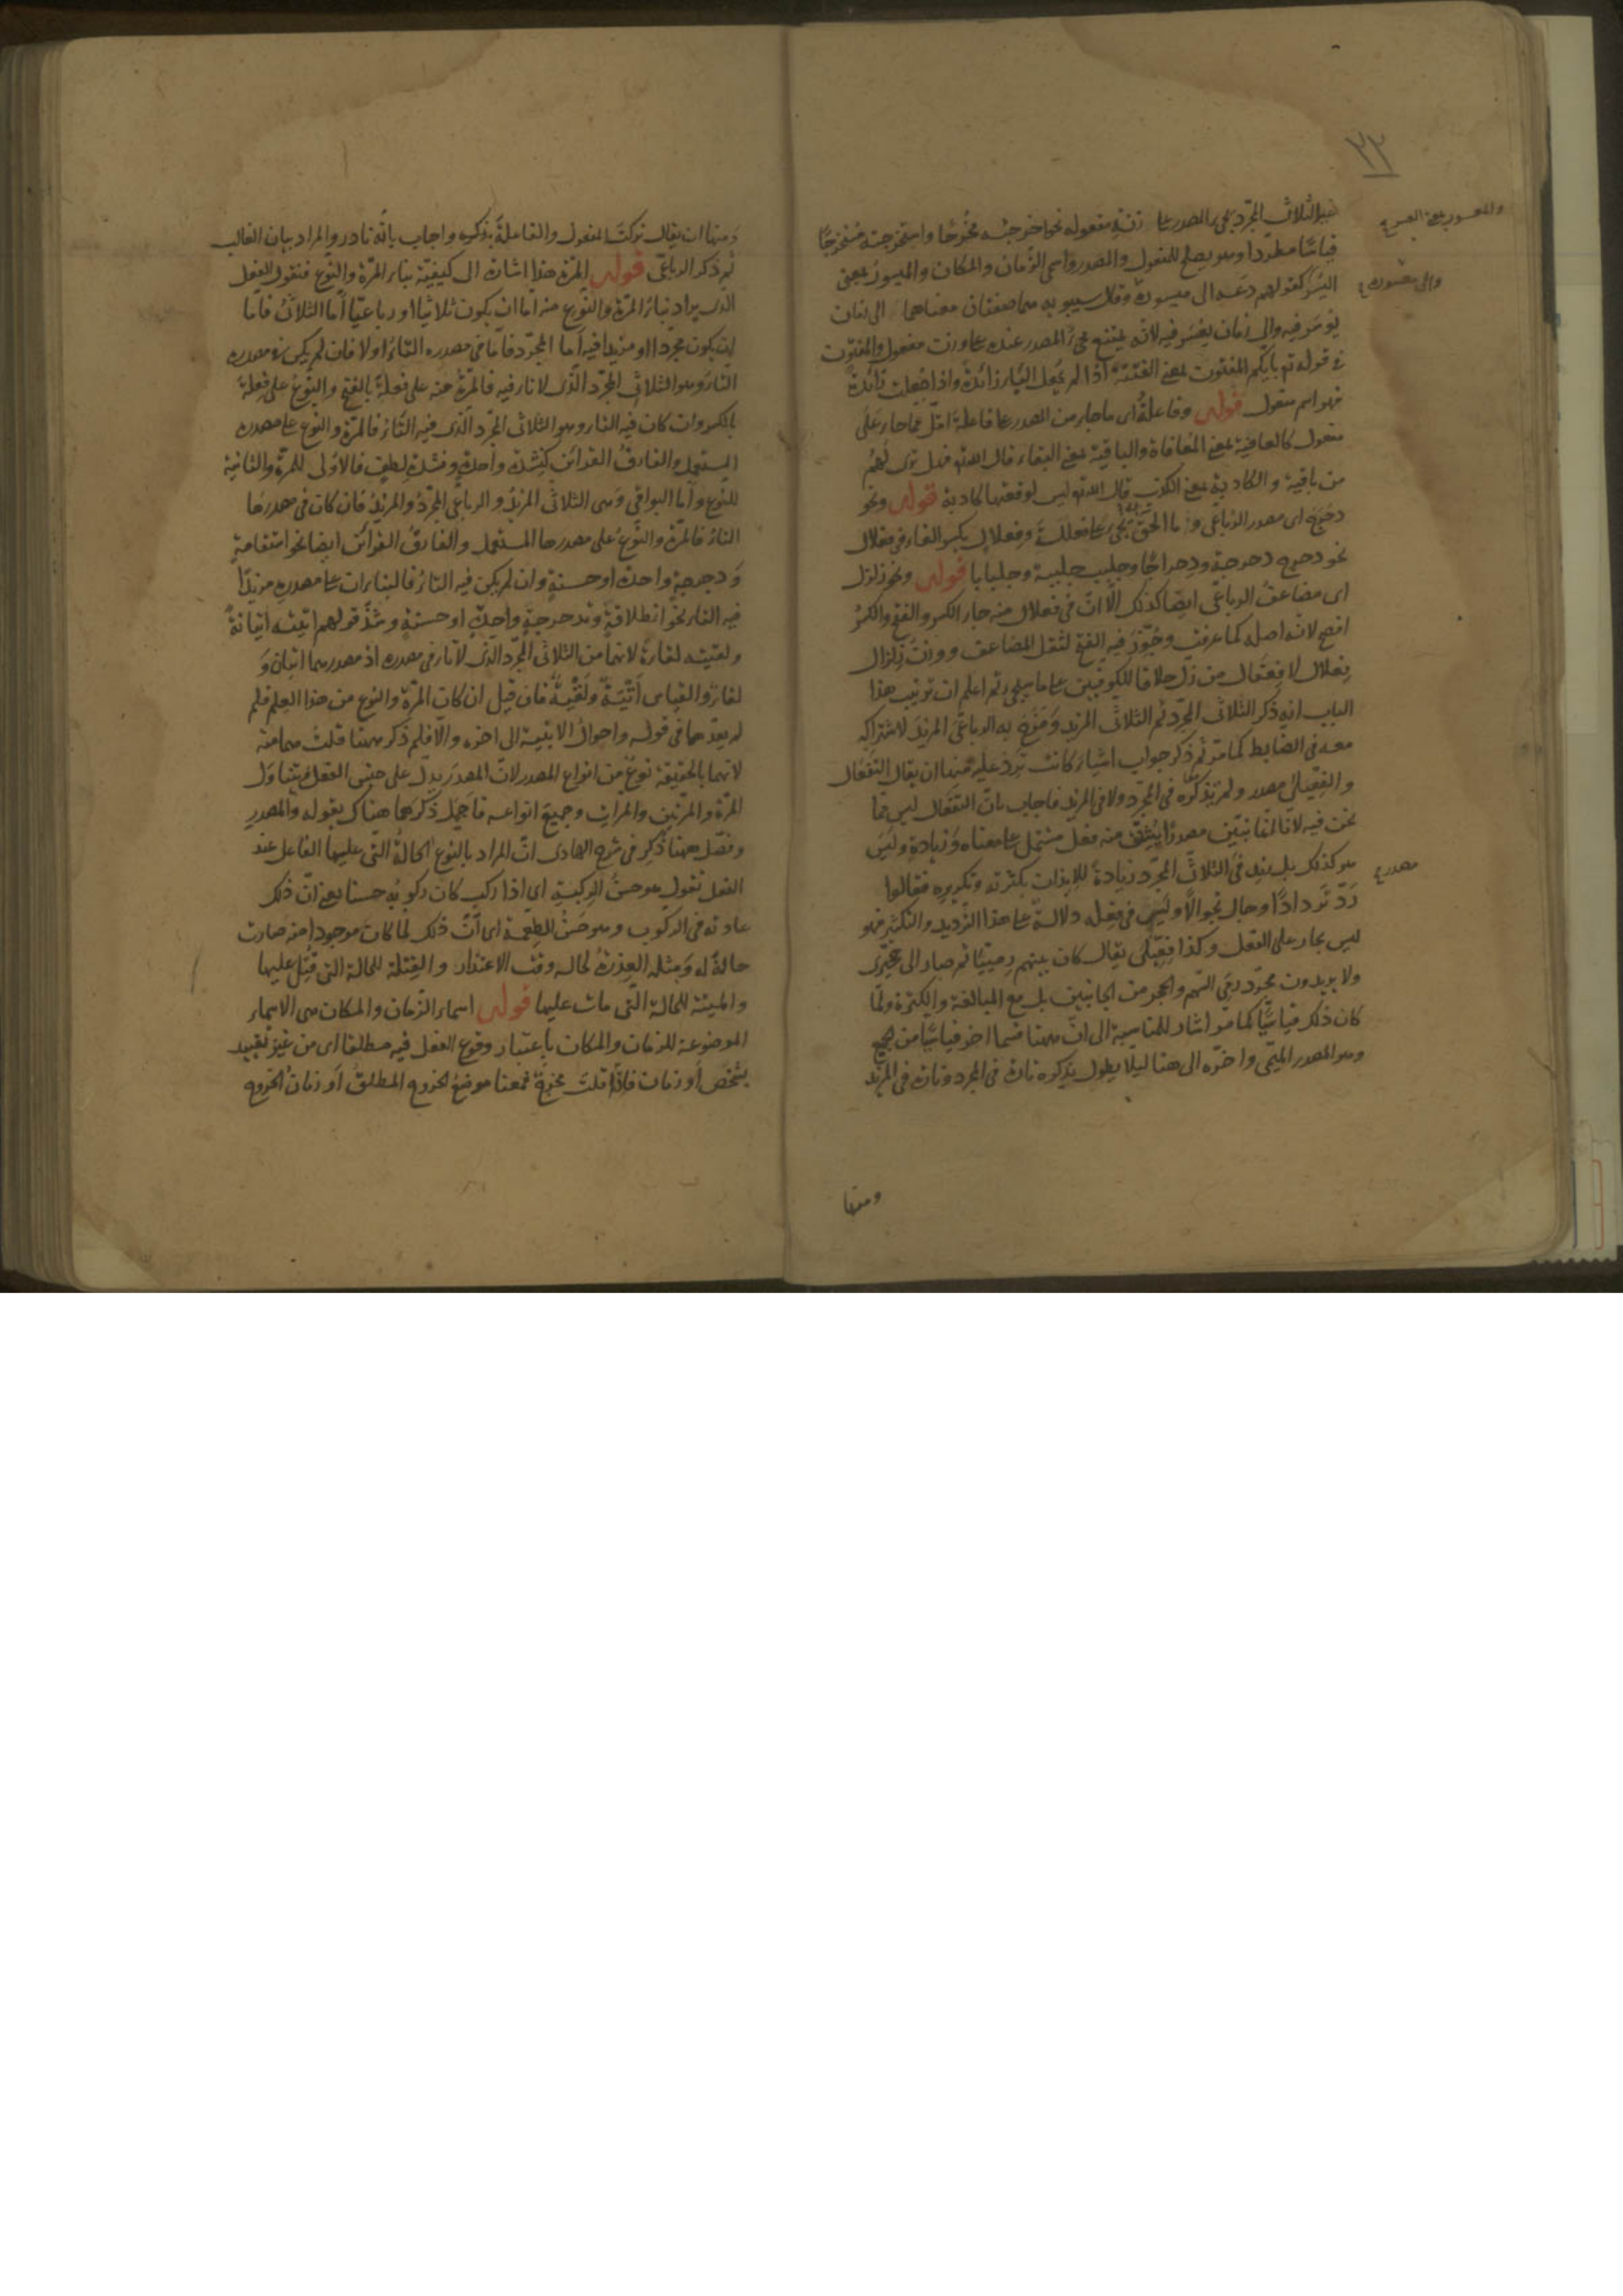 ٢٣
غير الثلاثى المجرد يجىء المصدر على زنة مفعوله نحو اخرجته مخرجا واستخرجته مستخرجا
قياسا مطردا وهو يصلح للمفعول والمصدر واسمى الزمان والمكان والميسور بمعنى
اليسر كقولهم دعه الى ميسوره وقال سيبويه هما صفتان معناهما الى زمان
يوسر فيه والى زمان يعسر فيه لانه يمتنع مجئ المصدر عنده على وزن مفعول والمفتون
فى قوله تع بايكم المفتون بمعنى الفتنة اذا لم يجعل الباء زائدة واذا جعلت زائدة
فهو اسم مفعول قوله وفاعلة اى ما جاء من المصدر على فاعلة اقل مما جاء على
مفعول كالعافية بمعنى المعافاة والباقية بمعنى البقاء قال الله تع فهل ترى لهم
من باقية والكاذبة بمعنى الكذب قال الله تع ليس لوقعتها كاذبة قوله ونحو
دحرج اى مصدر الرباعى وما الحق به يجىء على فعللة وفعلال بكسر الفاء فى فعلال
نحو دحرج دحرجة ودحراجا وجلبب جلببة وجلبابا قوله ونحو زلزل
اى مضاعف الرباعى ايضا كذلك الا ان فى فعلال منه جاء الكسر والفتح والكسر
افصح لانه اصله كما عرفت وجوز فيه الفتح لثقل المضاعف ووزن زلزال
فعلال لا فعفال من زل خلافا للكوفيين على ما سيجىء ثم اعلم ان ترتيب هذا
الباب انه ذكر الثلاثى المجرد ثم الثلاثى المزيد ومزج به الرباعى المزيد لاشتراكه
معه فى الضابط كما مر ثم ذكر جواب اشياء كانت ترد عليه منها ان يقال التفعال
والفعيلى مصدر ولم يذكره فى المجرد ولا فى المزيد فاجاب بان التفعال ليس مما
نحن فيه لانا لمعا نبين مصدرا يشتق منه فعل مشتمل على معناه وزيادة وليس
هو كذلك بل بنيه فى الثلاثى المجرد زيادة للايذان بكثرته وتكريره فقالوا
رد تردادا وجال تجوالا وليس فى فعله دلالة على هذا الترديد والتكثير فهو
ليس بجار على الفعل وكذا فعيلى يقال كان بينهم رميا ثم صار الى حجيزى
ولا يريدون مجرد رمى السهم والحجر من الجانبين بل مع المبالغة والكثرة ولما
كان ذكر قياسيا كما مر اشار للمناسبة الى ان ههنا قسما اخر قياسيا من الجميع
وهو المصدر الميمى واخره الى هنا ليلا يطول بذكره تارة فى المجرد وتارة فى المزيد
ومنها
والمعسور بمعنى العسر صح
والى معسوره صح
مصدر ح
ومنها ان يقال تركت المفعول والفاعلة بذكره واجاب بانه نادر والمراد بيان الغالب
ثم ذكر الرباعى قوله المرة هذا اشارة الى كيفية بناء المرة والنوع فنقول للفعل
الذى يراد بناء المرة والنوع منه اما ان يكون ثلاثيا او رباعيا اما الثلاثى فاما
ان يكون مجردا او مزيدا فيه اما المجرد فاما فى مصدره التاء او لا فان لم يكن فى مصدره
التاء وهو الثلاثى المجرد الذى لا تاء فيه فالمرة منه على فعلة بالفتح والنوع على فعلة
بالكسر وان كان فيه التاء وهو الثلاثى المجرد الذى فيه التاء فالمرة والنوع على مصدره
المستعمل والفارق القرائن كنشدة واحدة ونشدة لطيف فالاولى للمرة والثانية
للنوع واما البواقى وهى الثلاثى المزيد والرباعى المجرد والمزيد فان كان فى مصدرها
التاء فالمرة والنوع على مصدرها المستعمل والفارق القرائن ايضا نحو استقامة
ودحرجة واحدة او حسنة وان لم يكن فيه التاء فالبناءان على مصدره مزيدا
فيه التاء نحو انطلاقة وتدحرجة واحدة او حسنة وشذ قولهم اتيته اتيانة
ولقيته لقاءة لانهما من الثلاثى المجرد الذى لا تاء فى مصدره اذ مصدرهما اتيان و
لقاء والقياس أتية ولقية فان قيل ان كان المرة والنوع من هذا العلم فلم
لم يعدهما فى قوله واحوال الابنية الى اخره والا فلم ذكر ههنا قلت هما منه
لانهما بالحقيقة نوع من انواع المصدر لان المصدر يدل على جنس الفعل فيتناول
المرة والمرتين والمرات وجميع انواعه فاجمل ذكرهما هناك بقوله والمصدر
وفصل ههنا ذكر فى شرح الهادى ان المراد بالنوع الحالة التى عليها الفاعل عند
الفعل تقول هو حسن الركبة اى اذا ركب كان ركوبه حسنا يعنى ان ذلك
عادته فى الركوب وهو حسن الطعمة اى ان ذلك لما كان موجودا منه صارت
حالة له ومثله العذرة لحاله وقت الاعتذار والقتلة للحالة التى قتل عليها
والميتة للحالة التى مات عليها قوله اسماء الزمان والمكان هى الاسماء
الموضوعة للزمان والمكان باعتبار وقوع الفعل فيه مطلقا اى من غير تقييد
بشخص او زمان فاذا قلت مخرج فمعنا موضع الخروج المطلق او زمان الخروج